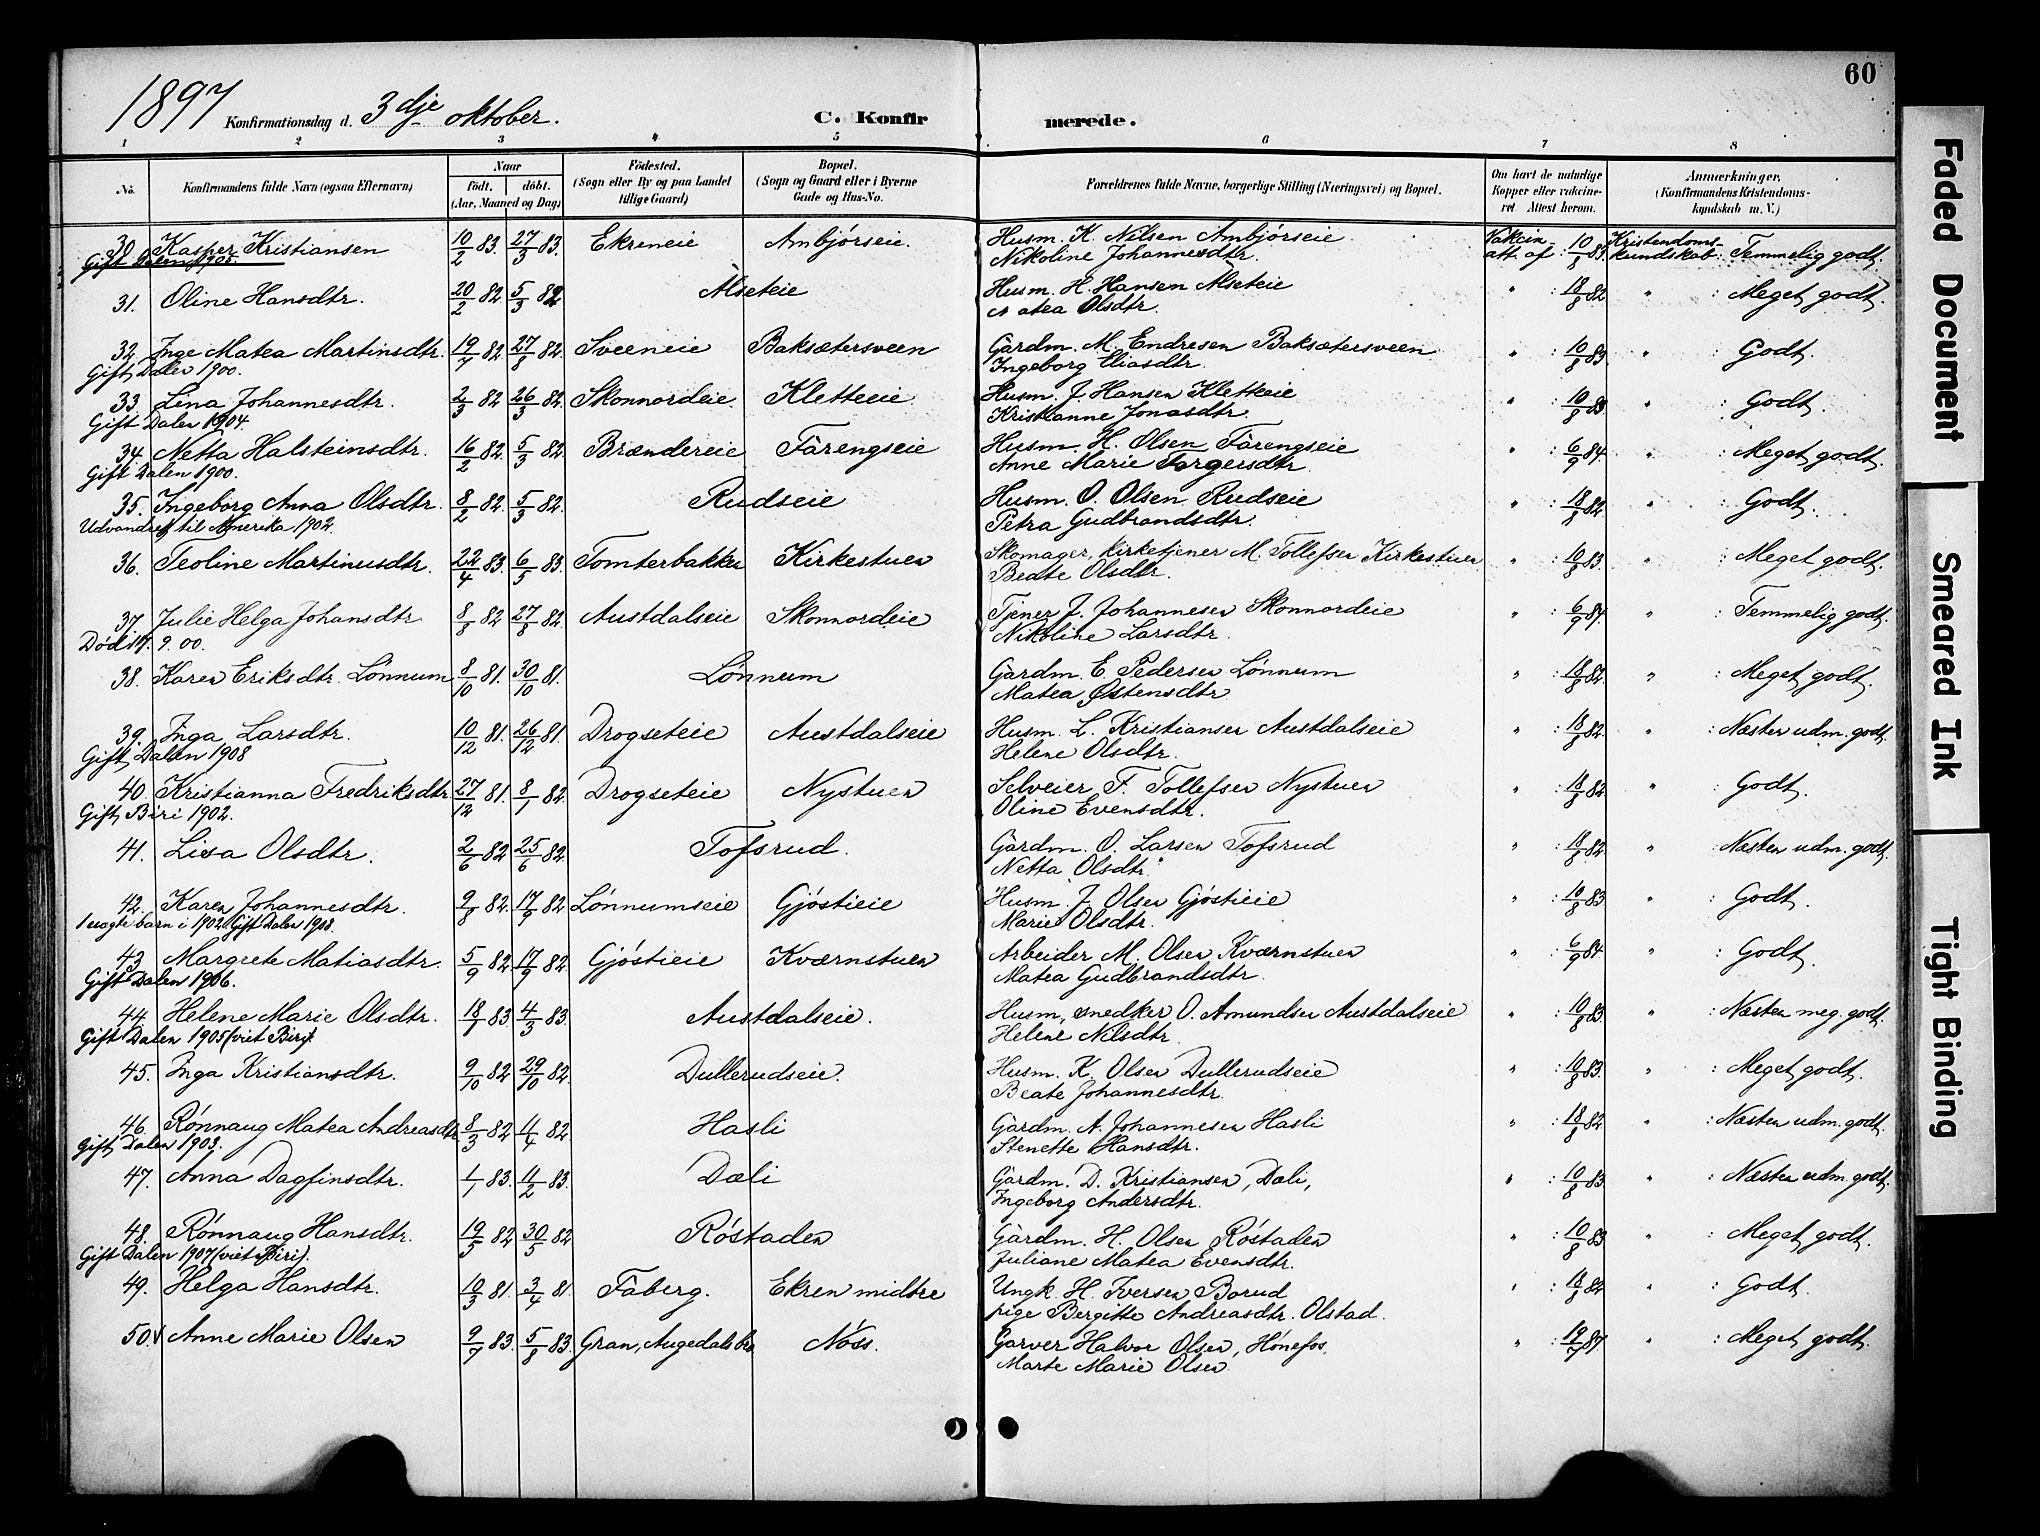 1897 Konfirmationsdag d. 3dje oktober. C. Konfirmerede. 60
1 2 3 4 5 6 7 8
No. Konfirmandens fulde Navn (ogsaa Efternavn) Naar født. døbt. (Aar, Maaned og Dag) Fødested. (Sogn eller By og paa Landet tillige Gaard) Bopæl. (Sogn og Gaard eller i Byerne Gade og Hus-No. Forældrenes fulde Navne, borgerlige Stilling (Næringsvei) og Bopæl. Om havt de naturlige Kopper eller vakcineret Attest herom. Anmærkninger, (Konfirmandens Kristendomskyndskab m. V.)
30. Kasper Kristiansen 10/2 83. 27/3 83. Ekreneie Ambjørseie. Husm. K. Nilsen Ambjørseie Vakcin- 10/8 83. Kristendoms-
Gift Dalen 1905. Nikoline Johannesdtr. att. af : kundskab : Temmelig godt.
31. Oline Hansdtr. 20/2 82 5/3 82 Alseteie Husm. H. Hansen Alseteie " : 18/8 82 " : Meget godt.
Matea Olsdtr.
32. Inge Matea Martinsdtr. 19/7 82. 27/8 82. Sveeneie Baksætersveen Gårdm. M. Endresen Baksætersveen " : 10/8 83. " : Godt.
Gift Dalen 1900. Ingeborg Eliasdtr.
33. Lina Johannesdtr. 2/3 82 26/3 82. Skonnordeie Kletteeie Husm. J. Hansen Kletteeie " : 10/8 83 " : Godt.
Gift Dalen 1904. Kristianne Jonasdtr.
34. Netta Halsteinsdtr. 16/2 82. 5/3 82. Brændereie Fårengseie Husm. H. Olsen Fårengseie " : 6/9 84. " : Meget godt.
Gift Dalen 1900. Anne Marie Torgersdtr.
35. Ingeborg Anna Olsdtr. 8/2 82. 5/3 82. Rudseie Husm. O. Olsen Rudseie " : 18/8 82. " : Godt.
Udvandret til Amerika 1902. Petra Gudbrandsdtr.
36. Teoline Martinusdtr. 22/4 83. 6/5 83. Tomterbakken Kirkestuen Skomager, kirketjener M. Tollefsen Kirkestuen " : 10/8 83. " : Meget godt.
Beate Olsdtr.
37. Julie Helga Johansdtr 8/8 82 27/8 82. Austdalseie Skonnordeie Tjener J. Johannesen Skonnordeie " : 6/9 84. " : Temmelig godt.
Død 9.00. Nikoline Larsdtr.
38. Karen Eriksdtr. Lønnum 8/10 81. 30/10 81. Lønnum Gårdm. E. Pedersen Lønnum " : 18/8 82. " : Meget godt.
Matea Østensdtr.
39. Inga Larsdtr. 10/12 81. 26/12 81. Drogseteie Austdalseie Husm. L. Kristiansen Austdalseie " : 18/8 82. " : Næsten udm. godt.
Gift Dalen 1908 Helene Olsdtr.
40. Kristianna Fredriksdtr 27/12 81. 8/1 82. Drogseteie Nystuen Selveier F. Tollefsen Nystuen " : 18/8 82. " : Godt.
Gift Biri 1902. Oline Evensdtr.
41. Lisa Olsdtr. 2/6 82 25/6 82. Tofsrud. Gårdm. O. Larsen Tofsrud " : 18/8 82. " : Næsten udm. godt.
Netta Olsdtr.
42. Karen Johannesdtr. 9/8 82. 17/9 82 Lønnumseie Gjøstieie Husm. J. Olsen Gjøstieie " : 10/8 83 " : Godt.
1 uægte barn i 1902. Gift Dalen 1908. Marie Olsdtr.
43. Margrete Matiasdtr. 5/9 82 17/9 82 Gjøstieie Kværnstuen Arbeider M. Olsen Kværnstuen " : 6/9 84. " : Godt.
Gift Dalen 1906. Matea Gudbrandsdtr.
44. Helene Marie Olsdtr. 18/1 83 4/3 83. Austdalseie. Husm, snedker O. Amundsen Austdalseie " : 10/8 83. " : Næsten meg. godt.
Gift Dalen 1905 (viet Biri). Helene Nilsdtr.
45. Inga Kristiansdtr. 9/10 82 29/10 82. Dullerudseie. Husm. K. Olsen Dullerudseie " : 10/8 83. " : Meget godt.
Beate Johannesdtr.
46. Rønnaug Matea Andreasdtr. 8/3 82 11/4 82 Hasli Gårdm. A. Johannesen Hasli " : 18/8 82 " : Næsten udm. godt.
Gift Dalen 1903. Stenette Hansdtr.
47. Anna Dagfinsdtr. 1/1 83. 11/2 83. Dæli Gårdm. D. Kristiansen, Dæli, " : 10/8 83 " : Næsten udm. godt.
Ingeborg Andersdtr.
48. Rønnaug Hansdtr. 19/5 82 30/5 82 Røstaden Gårdm. H. Olsen Røstaden " : 10/8 83 " : Meget godt.
Gift Dalen 1907 (viet Biri). Juliane Matea Evensdtr.
49. Helga Hansdtr. 10/3 81 3/4 81 Fåberg. Ekren midtre Ungk. H. Iversen Borud " : 18/8 82 " : Godt.
pige Bergitte Andreasdtr. Olstad.
50. Anne Marie Olsen 9/7 83. 5/8 83 Gran, Augedalsbro Nøss. Garver Halvor Olsen, Hønefos, " : 19/7 87. " : Meget godt.
Marte Marie Olsen
Faded Document
Smeared Ink
Tight Binding